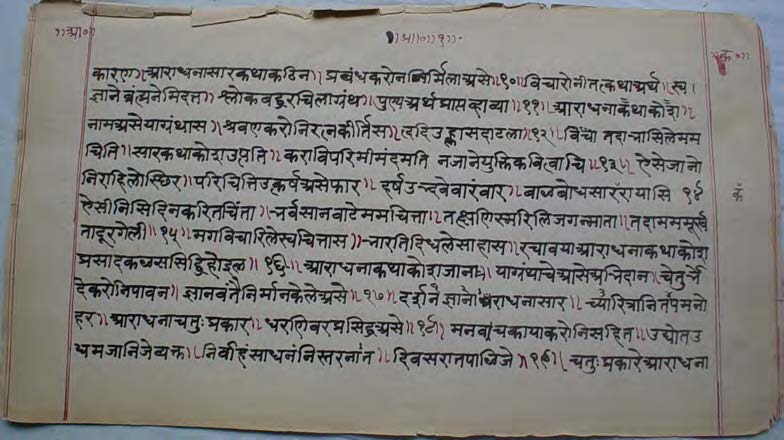 ॥आ॰॥ ॥आ॰॥१॥॰
कारण॥आराधनासारकथाकठिन॥प्रबंधकरोननिर्मिलाअसे॥१०॥विचारोनीतत्कथाअर्थ॥स्व।
ज्ञानेब्रंह्मनेमिदत्त॥श्लोकबद्धरचिलाग्रंथ॥पुण्यअर्थप्राप्तव्हाव्या॥११॥आराधनाकथाकोश।
नामअसेयाग्रंथास॥श्रवणकरोनिरत्नकीर्तिस॥हृदिउल्हासदाटला॥१२॥ तदाचासिलेमम
चिति॥सारकथाकोशउप्तति॥कराविपरिमीमंदमति नजानेयुक्तिकवित्वाचि॥१३॥ऐसेजानो
निराहिलोस्छिर॥परिचितिउत्कर्षअसेफार॥हर्षउन्द्भवेवारंवार॥बाळबोधसाररायासि १४
ऐसीनिसिदिनकरितचिंता॥नर्वसानवाटेममचित्ता॥तत्क्षणिस्मरिलिजगन्माता॥तदामममूर्ख
तादूरगेली॥१५॥मगविचारिलेस्वचित्तास॥भारतिदिधलेसाहास॥रचावयाआराधनाकथाकोश
प्रसादकळससिद्धिहोइल॥१६॥आराधनाकथाकोशजाना॥याग्रंथाचेअसेअभिदान॥
देकरोनिपावन॥ज्ञानवंतैनिर्मानकेलेअसे॥१७॥दर्शनज्ञानआराधनासार॥च्यारित्रानितपमनो
हर॥आराधनाचतुःप्रकार॥धरणिवरप्रसिद्धअसे॥१८॥मनवाचकायाकरोनिसहित॥उद्योतउ
द्यमजानिजेव्यक्त॥निर्वाहंसाधनंनिस्तरनांत॥दिवसरातपाळिजे॥१९॥चतुःप्रकारेआराधना